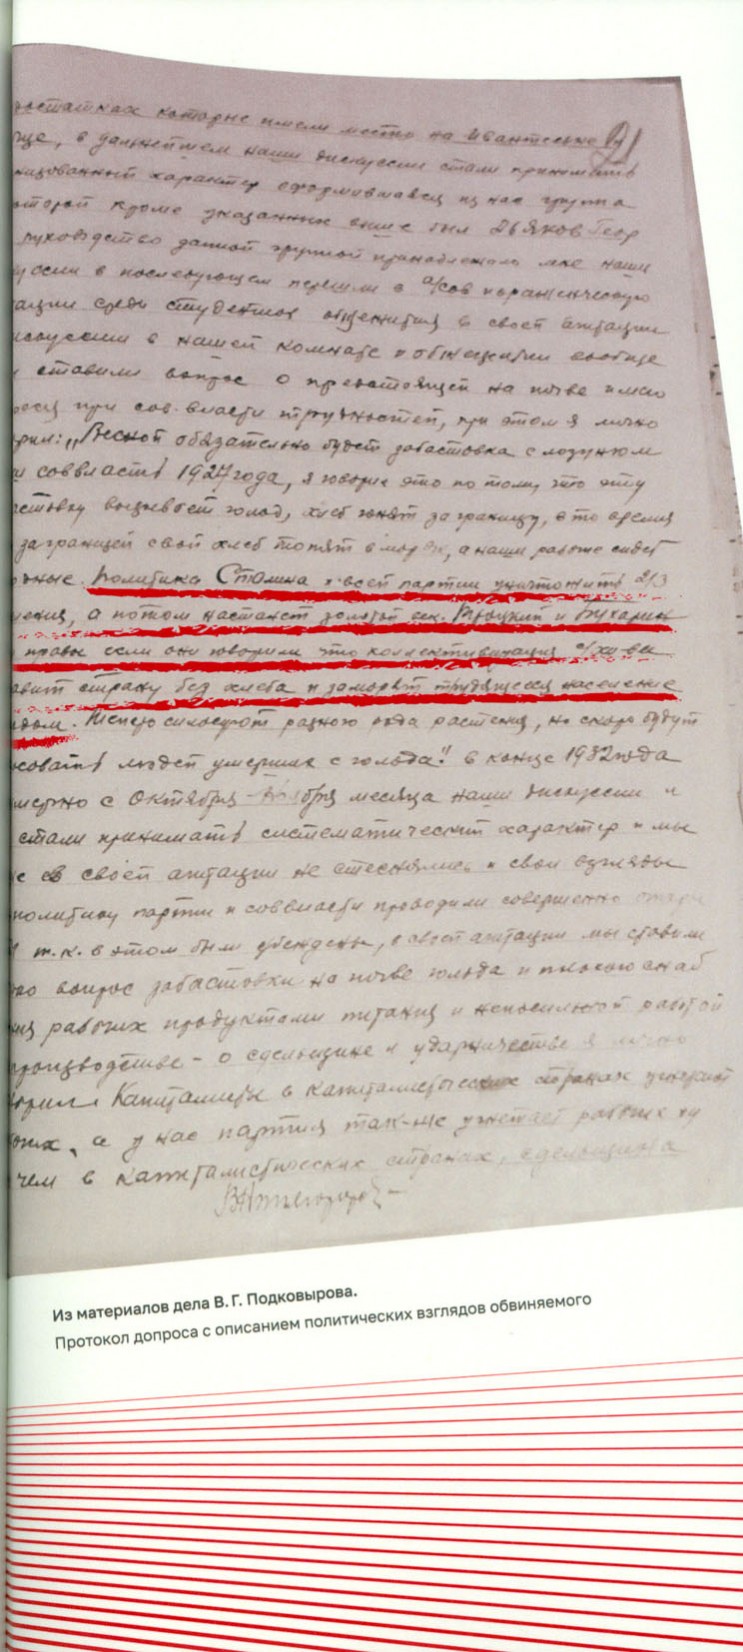 достатках которые имели место на Ивантеевке
ще, в дальнейшем наши дискуссии стали принимать
низованный характер сформировавшаяся из нас группа
оторой кроме указанных выше был Дьяков Геор
руководство данной группой принадлежало мне наши
уссии в последующем перешли в а/сов пораженческую
ации среди студентов общежития в своей агитации
искуссии в нашей комнате и общежитии вообще
ставили вопрос о предстоящей на почве имею
при сов. власти трудностей, при этом я лично
рил: „Весной обязательно будет забастовка с лозунгом
соввласть 1927 года, я говорю это потому, что эту
астовку вызывает голод, хлеб гонят за границу, в то время
за границей свой хлеб топят в морях, а наши рабочие сидят
одные. Политика Сталина и всей партии уничтожить 2/3
ления, а потом настанет золотой век. Троцкий и Бухарин
правы если они говорили что коллективизация с/хо-ва
авит страну без хлеба и заморят трудящееся население
одом. Теперь силосуют разного рода растения, но скоро будут
осовать людей умерших с голода". В конце 1932 года
мерно с Октября-Ноября месяца наши дискуссии и
стали принимать систематический характер и мы
е в своей агитации не стеснялись и свои взгляды
политику партии и соввласти проводили совершенно
т.к. в этом были убеждены, в своей агитации мы ставили
вопрос забастовки на почве голода и плохого снаб
ия рабочих продуктами питания и непосильной работой
производстве - о сдельщине и ударничестве я лично
орил. Капиталисты в капиталистических странах угнетают
очих, а у нас партия так-же угнетает рабочих ху
чем в капиталистических странах, сдельщина
Из материалов дела В. Г. Подковырова.
Протокол допроса с описанием политических взглядов обвиняемого